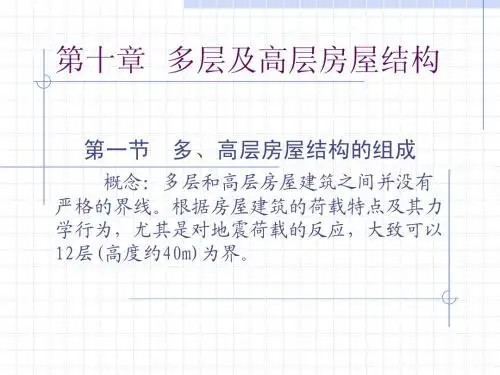 第十章 多层及高层房屋结构
第一节 多、高层房屋结构的组成
概念：多层和高层房屋建筑之间并没有
严格的界线。根据房屋建筑的荷载特点及其力
学行为，尤其是对地震荷载的反应，大致可以
12层(高度约40m)为界。